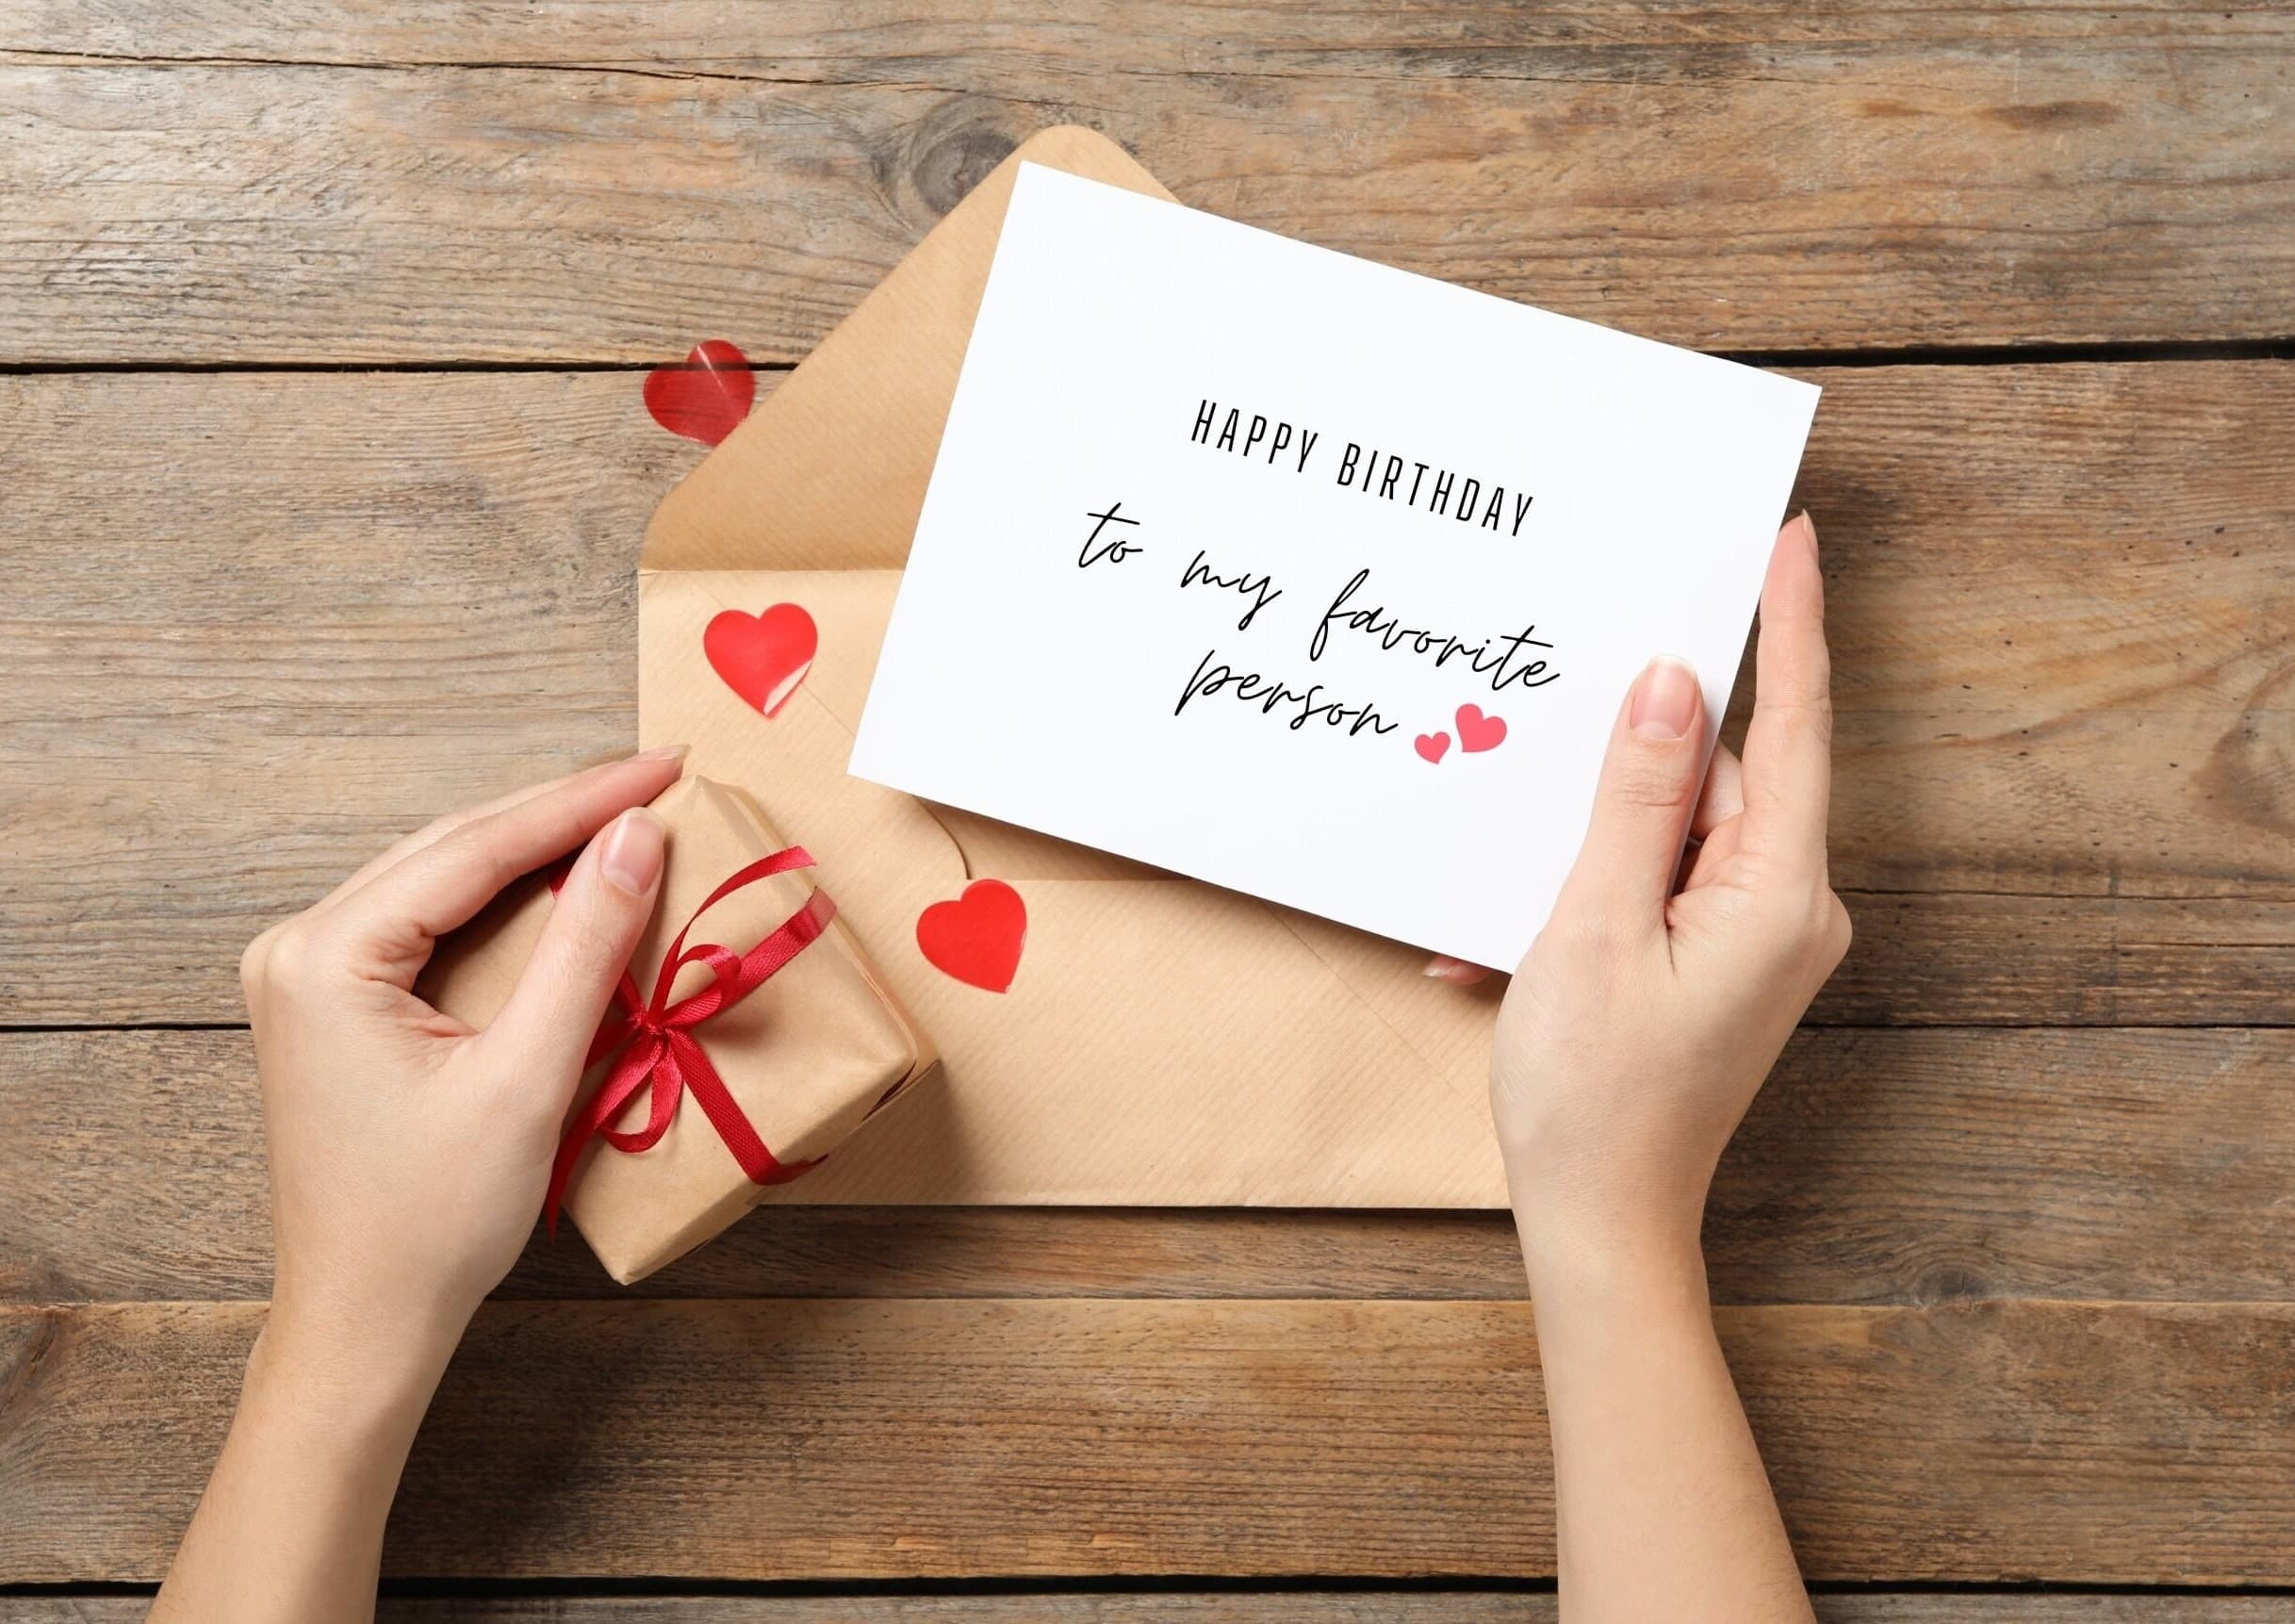 HAPPY BIRTHDAY
to my favorite
person